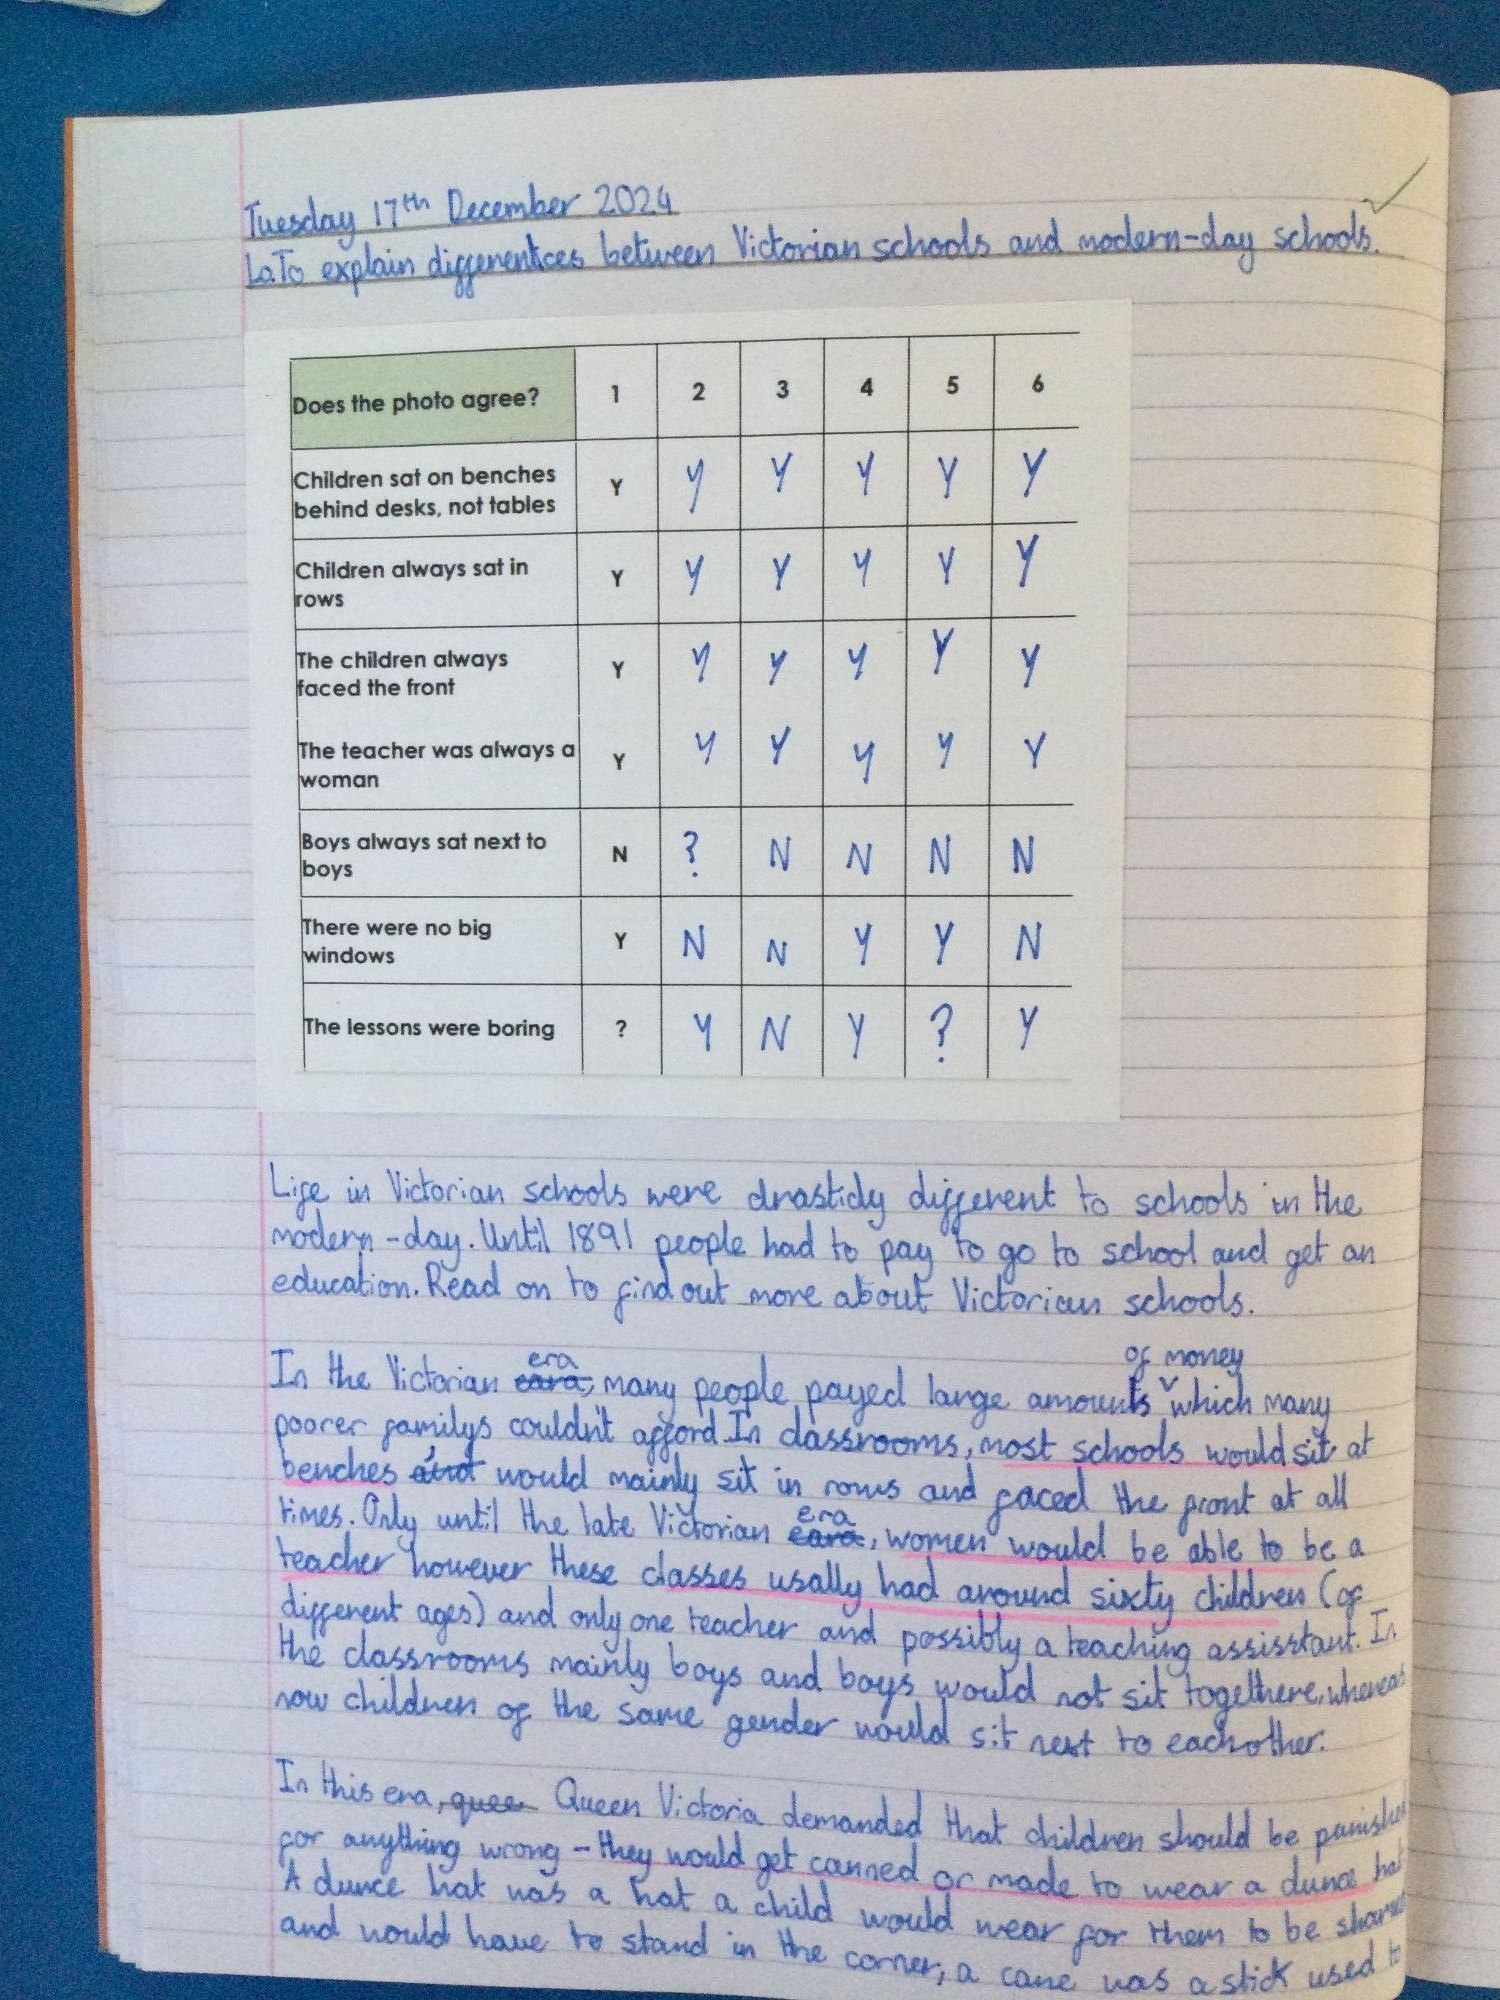 Tuesday 17th December 2024
L.o.To explain differentces between Victorian schools and modern-day schools.
Does the photo agree? 1 2 3 4 5 6
Children sat on benches
behind desks, not tables Y Y Y Y Y Y
Children always sat in
rows Y Y Y Y Y Y
The children always
faced the front Y Y Y Y Y Y
The teacher was always a
woman Y Y Y Y Y Y
Boys always sat next to
boys N ? N N N N
There were no big
windows Y N N Y Y N
The lessons were boring ? Y N Y ? Y
Life in Victorian schools were drasticly different to schools in the
modern-day. Until 1891 people had to pay to go to school and get an
education. Read on to find out more about Victorian schools.
In the Victorian era, many people payed large amounts of money which many
poorer familys couldn't afford. In classrooms, most schools would sit at
benches, would mainly sit in rows and faced the front at all
times. Only until the late Victorian era, women would be able to be a
teacher however these classes usally had around sixty children (of
different ages) and only one teacher and possibly a teaching assisstant. In
the classrooms mainly boys and boys would not sit togethere, whereas
now children of the same gender would sit next to eachother.
In this era, quee Queen Victoria demanded that children should be
for anything wrong - they would get canned or made to wear a dunce hat
A dunce hat was a hat a child would wear for them to be
and would have to stand in the corner, a cane was a stick used to